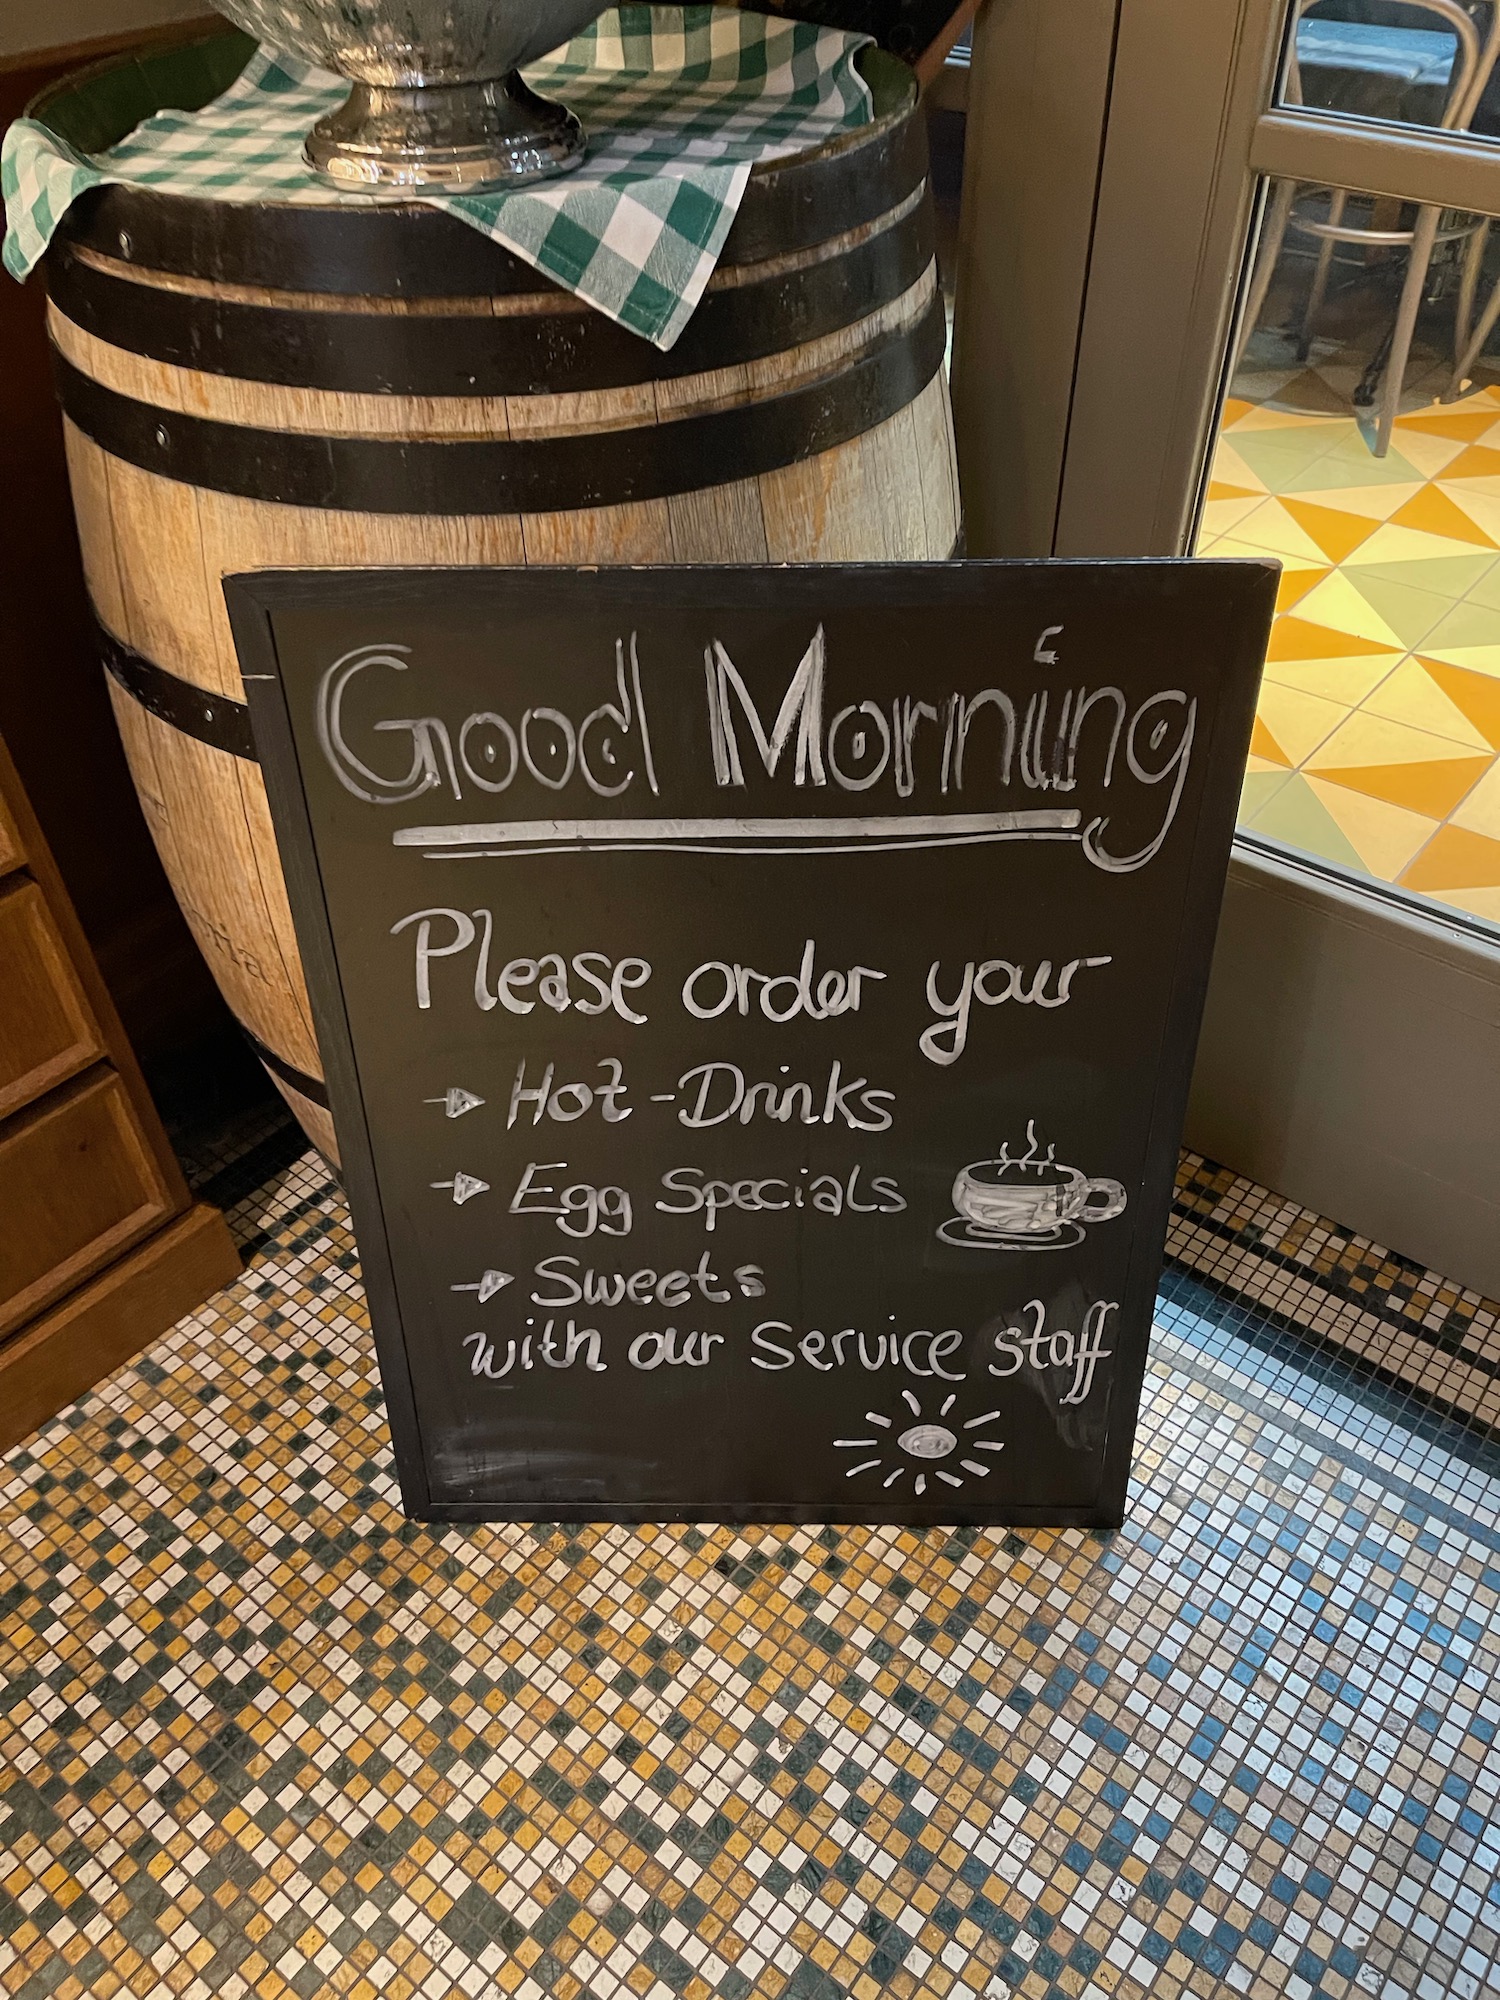 Good Morning
Please order your
Hot-Drinks
Egg Specials
Sweets
with our Service staff